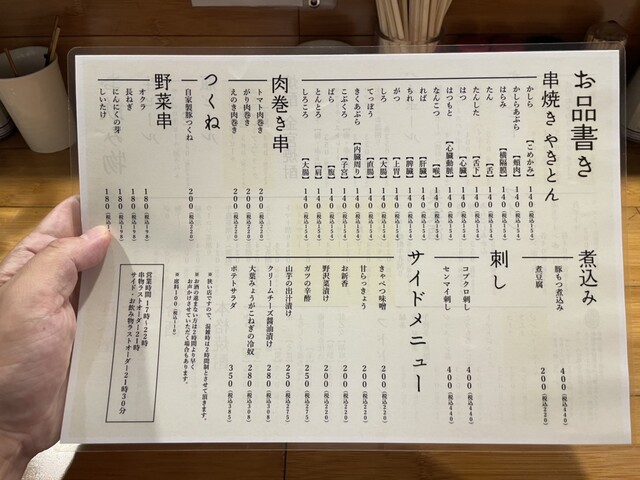 お品書き
串焼き やきとん
かしら 【こめかみ】 140(税込154)
かしらあぶら 【頬肉】 140(税込154)
はらみ 【横隔膜】 140(税込154)
たん 【舌】 140(税込154)
たんした 【舌下】 140(税込154)
はつ 【心臓】 140(税込154)
はつもと 【心臓動脈】 140(税込154)
なんこつ 【喉】 140(税込154)
ればー 【肝臓】 140(税込154)
ちれ 【脾臓】 140(税込154)
がつ 【上胃】 140(税込154)
しろ 【大腸】 140(税込154)
てっぽう 【直腸】 140(税込154)
きくあぶら 【内臓周り】 140(税込154)
こぶくろ 【子宮】 140(税込154)
ばら 【腹】 140(税込154)
とんとろ 【肩】 140(税込154)
しろころ 【大腸】 140(税込154)
肉巻き串
トマト肉巻き 200(税込220)
がり肉巻き 200(税込220)
えのき肉巻き 200(税込220)
つくね
自家製豚つくね 200(税込220)
野菜串
オクラ 180(税込198)
長ねぎ 180(税込198)
にんにくの芽 180(税込198)
しいたけ 180(税込198)
煮込み
豚もつ煮込み 400(税込440)
煮豆腐 200(税込220)
刺し
コブクロ刺し 400(税込440)
センマイ刺し 400(税込440)
サイドメニュー
きゃべつ味噌 200(税込220)
甘らっきょう 200(税込220)
お新香 200(税込220)
野沢菜漬け 200(税込220)
ガツの辛酢 250(税込275)
山芋の出汁漬け 250(税込275)
クリームチーズ醤油漬け 280(税込308)
大葉みょうがこねぎの冷奴 280(税込308)
ポテトサラダ 350(税込385)
※狭い店ですので、混雑時は2時間制とさせて頂きます。
※お酒の進まない方は2時間より早く
お声かけさせていただく場合もあります。
※席料100(税込110)
営業時間 17時〜22時
串物ラストオーダー21時
サイド・お飲み物ラストオーダー21時30分